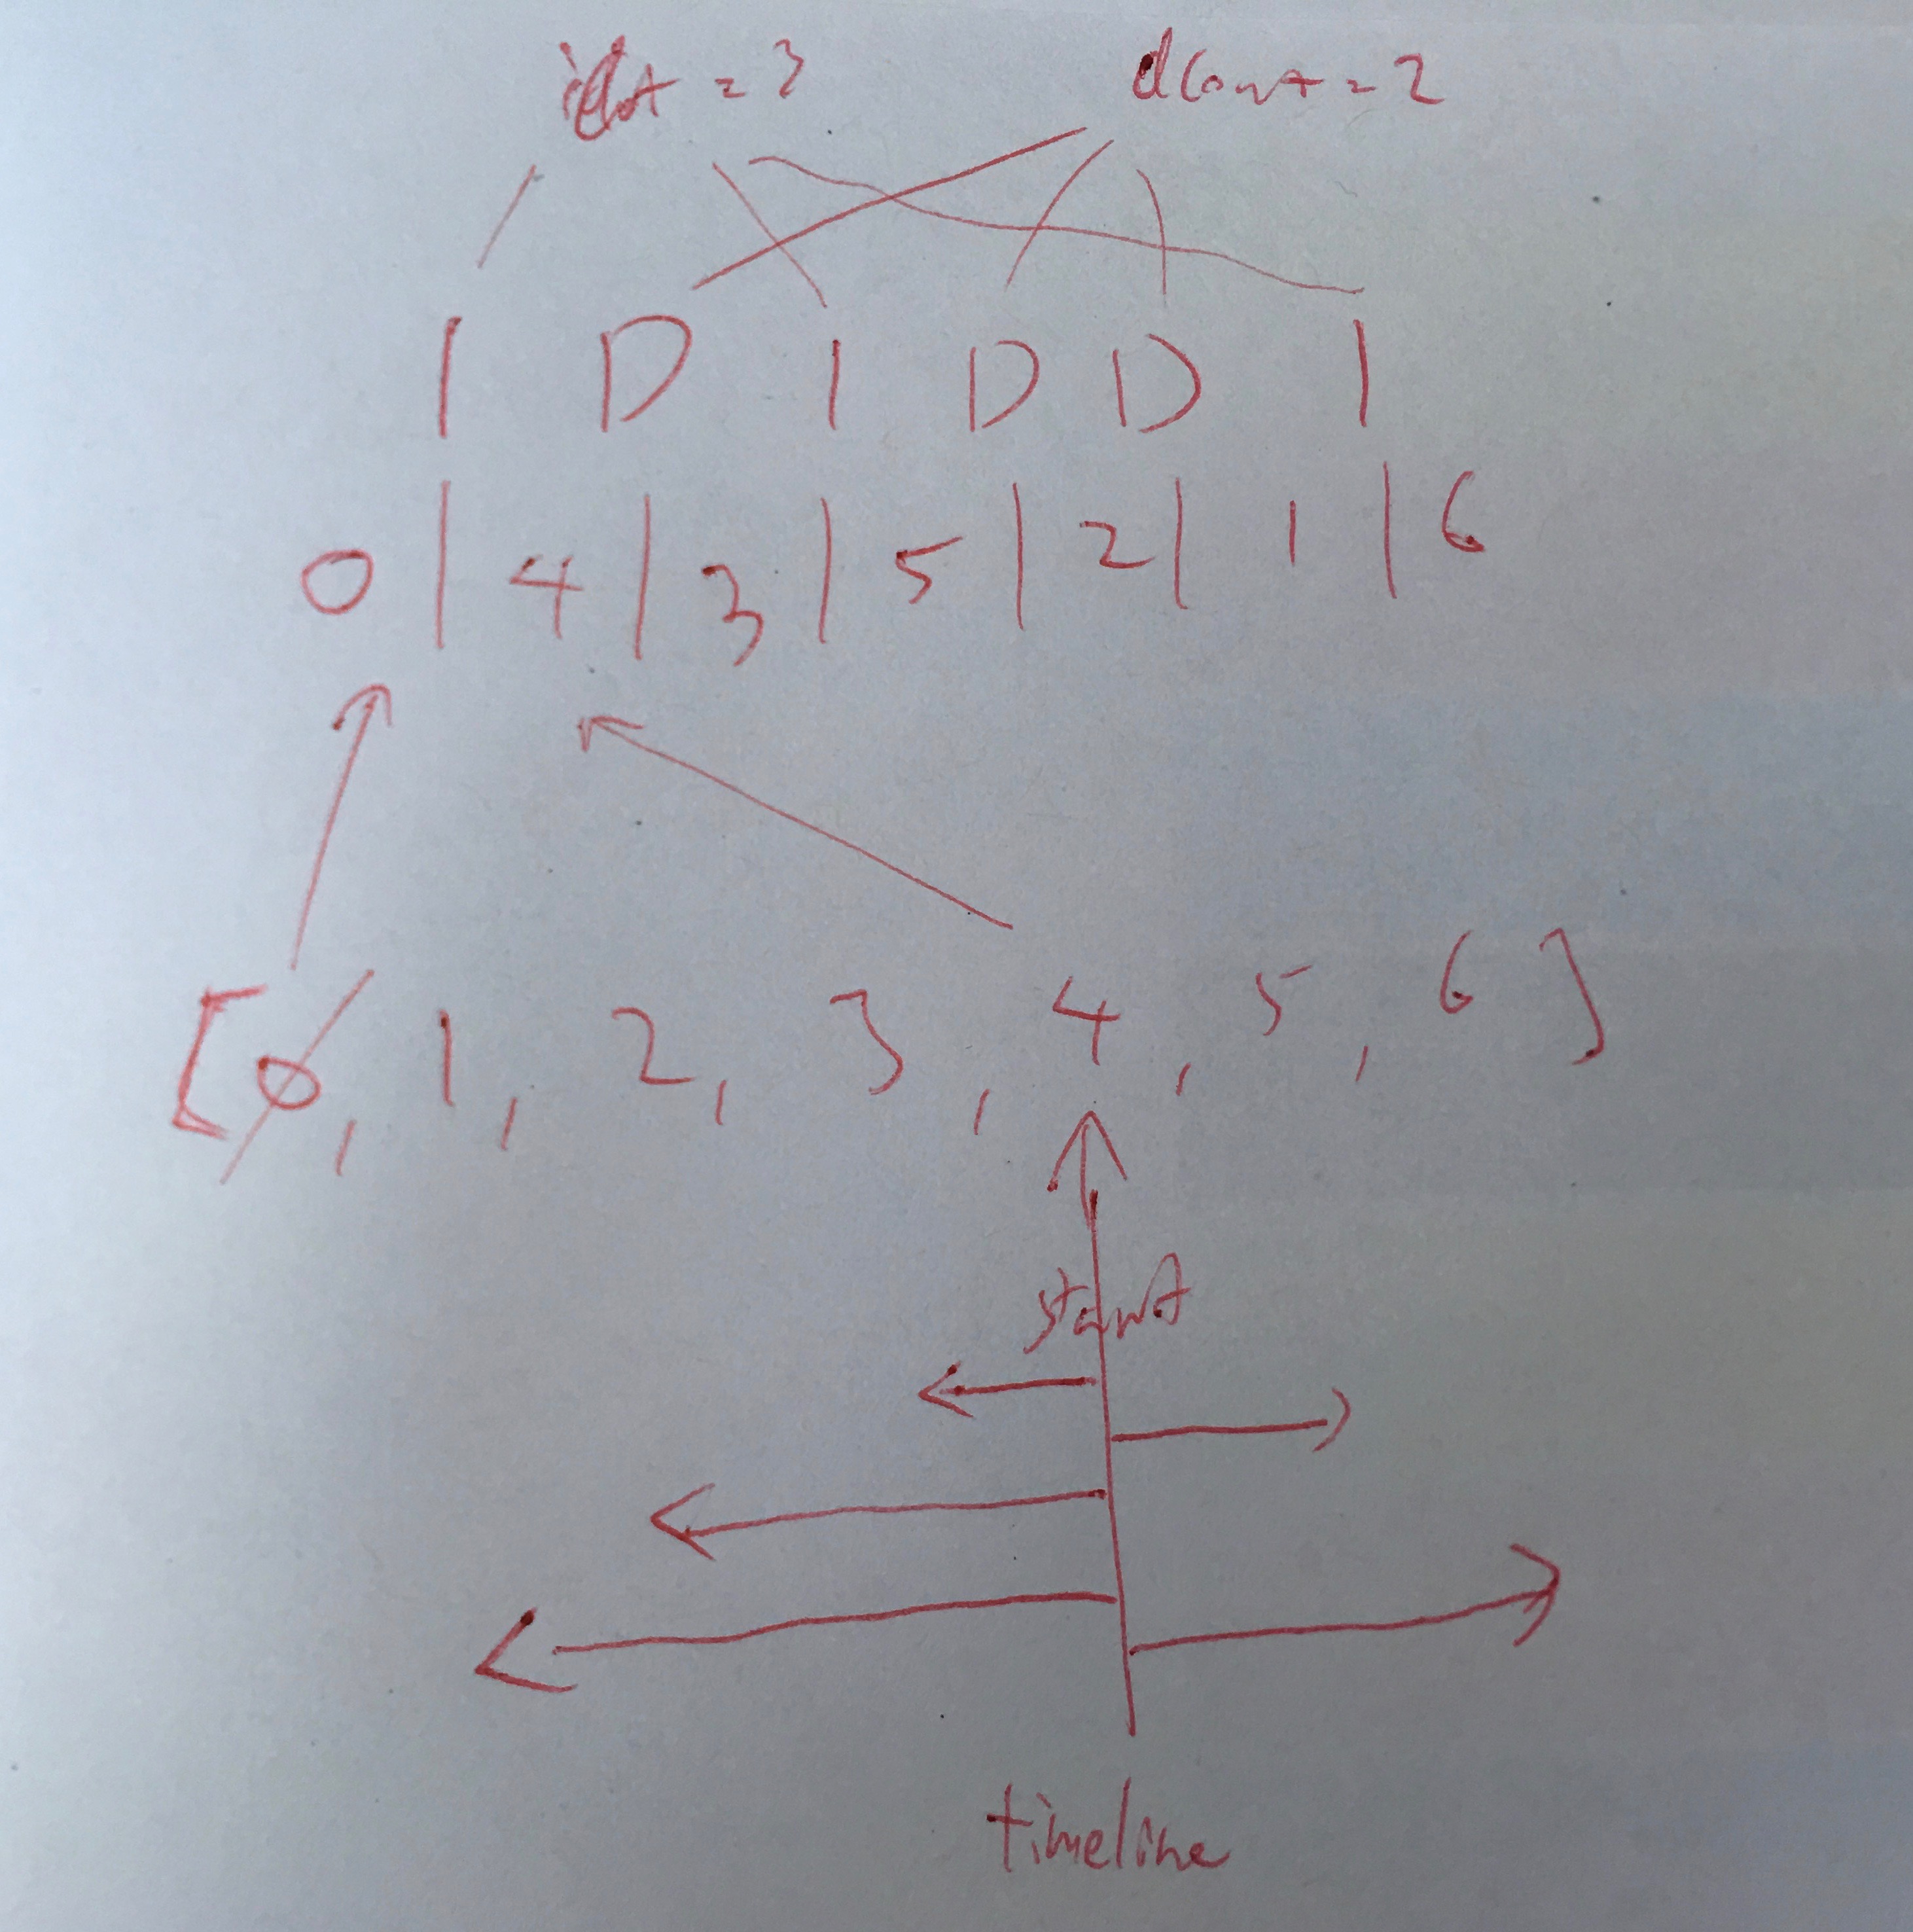 = 3 dcount = 2
I D I D D I
0 | 4 | 3 | 5 | 2 | 1 | 6
[0, 1, 2, 3, 4, 5, 6]
start
timeline